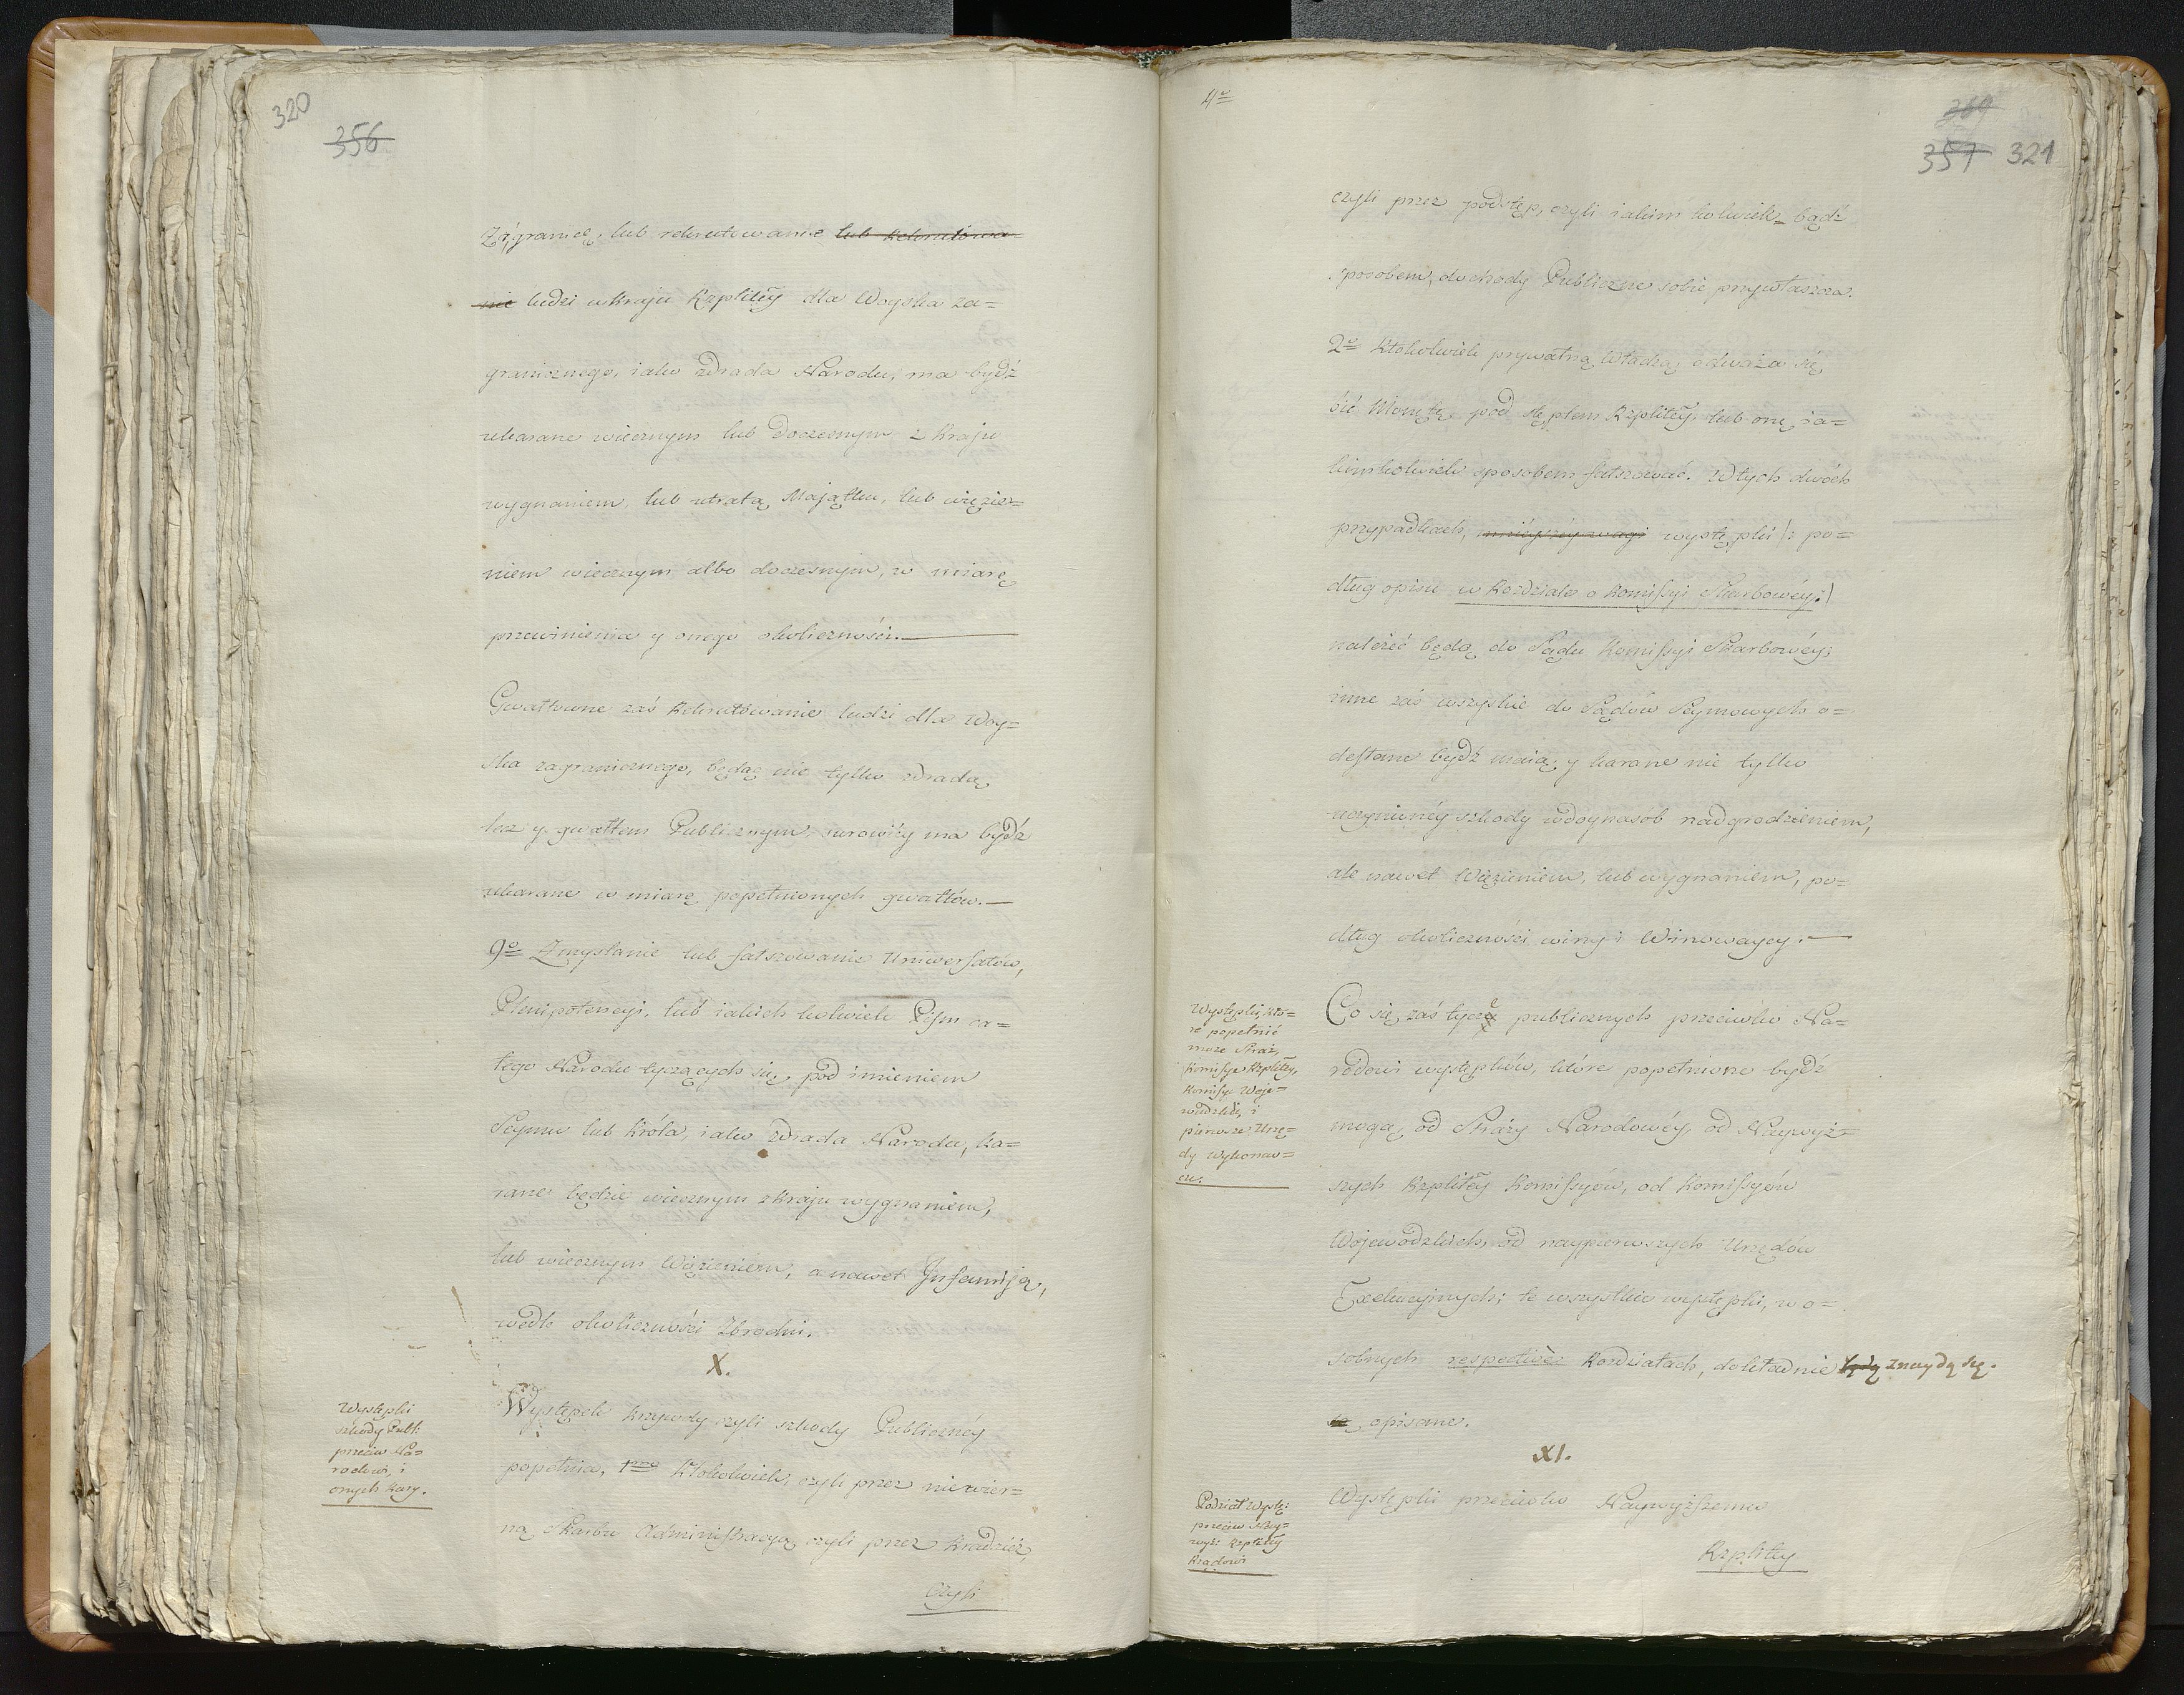 320
356
Zágranicę, lub rekrutowanie lub Rekrutowa=
nie ludzi w Kraju Rzplitéy dla Woyska za=
granicznego, iako zdrada Narodu, ma bydź
ukarane wiecznym lub doczesnym z Kraju
wygnaniem, lub utratą Majątku, lub więzie=
niem wiecznym albo doczesnym, w miarę
przewinienia y onego okoliczności.
Gwałtowne zaś Rekrutowanie ludzi dla Woy=
ska zagranicznego, będąc nie tylko zdradą
lecz y gwałtem Publicznym, surowiéy ma bydź
ukarane w miarę popełnionych gwałtów.
9o Zmyslanie lub fałszowanie Uniwersałów,
Plenipotencyi, lub iakich kolwiek Pism ca=
łego Narodu tyczących się, pod imieniem
Seymu lub Króla, iako zdrada Narodu, ka=
rane będzie wiecznym z Kraju wygnaniem,
lub wiecznym Więzieniem, a nawet Infamiją,
wedle okoliczności Zbrodni.
X.
Występki
szkody Publ:
przeciw Na=
rodowi, i
onych Kary.
Występek Krzywdy czyli szkody Publicznéy
popełnia, 1mo Ktokolwiek, czyli przez niewier=
ną Skarbu Administracyą, czyli przez Kradzież,
czyli
4o
369
357 321
czyli przez podstęp, czyli iakim kolwiek= bądź
sposobem, dochody Publiczne sobie przywłaszcza.
2o Ktokolwiek prywatną Władzą, odważa się
bić Monetę pod stęplem Rzplitéy, lub onę ia=
kimkolwiek sposobem fałszować. W tych dwóch
przypadkach, mniéyszéy wagi występki /: po=
dług opisu w Rozdziale o Komissyi Skarbowéy:/
należeć będą do Sądu Komissyi Skarbowéy;
inne zaś wszystkie do Sądów Seymowych o=
desłane bydź maią, y karane nie tylko
uczynionéy szkody wdoynasób nadgrodzeniem,
ale nawet Więzieniem, lub wygnaniem, po=
dług okoliczności winy i Winowaycy.
Występki, któ=
re popełnić
może Straż,
Komissye Rzplitéy,
Komissye Woje=
wudzkie, i
pierwsze Urzę=
dy wykonaw=
cze.
Co się zaś tycze publicznych przeciwko Na=
rodowi występków, które popełnione bydź
mogą, od Straży Narodowéy, od Naywyż=
szych Rzplitéy Komissyów, od Komissyów
Wojewodzkich, od naypierwszych Urzędów
Exekucyjnych; te wszystkie występki, w o=
sobnych respective Rozdziałach, dokładnie będą znaydą się.
są opisane.
XI.
Podział Wystę:
przeciw Nay=
wyż: Rzplitéy
Rządowi
Występki przeciwko Naywyższemu
Rzplitéy